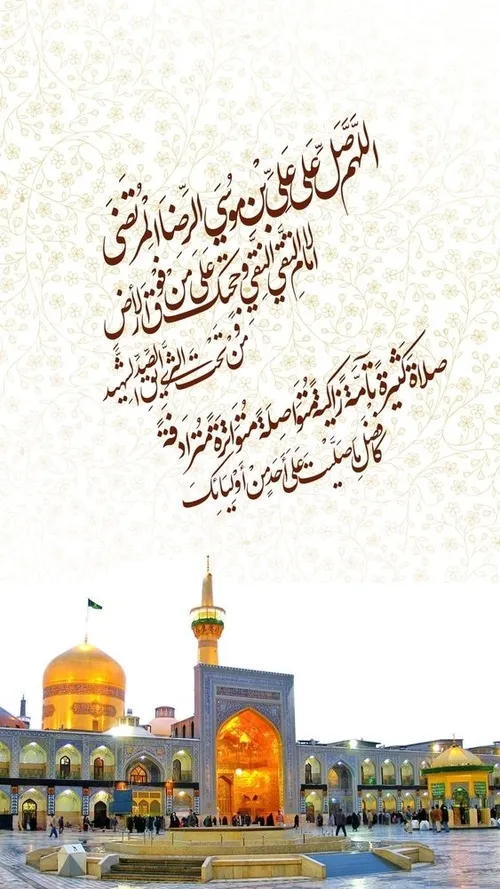 اللّهُمَّ صَلِّ عَلى عَلِيِّ بْنِ مُوسَى الرِّضَا الْمُرْتَضَى
الاِمامِ التَّقِيِّ النَّقِيِّ وَحُجَّتِكَ عَلى مَنْ فَوْقَ الاَرْضِ
وَ مَنْ تَحْتَ الثَّرى الصِّدّيقِ الشَّهيدِ
صَلاةً كَثيرَةً تآمَّةً زاكِيَةً مُتَواصِلَةً مُتَواتِرَةً مُتَرادِفَةً
كَاَفْضَلِ ما صَلَّيْتَ عَلى اَحَدٍ مِنْ اَوْلِيائِكَ